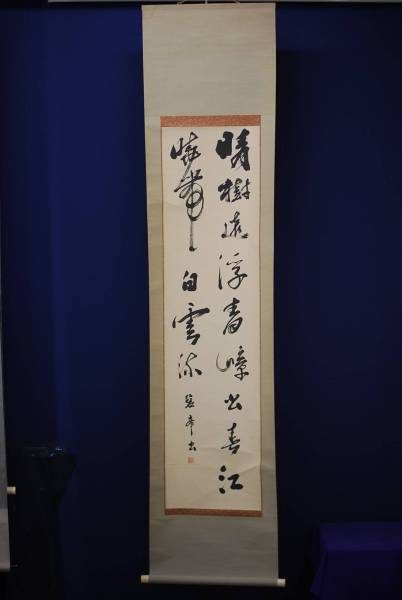 晴樹遠浮青嶂出春江
曉帶白雲流